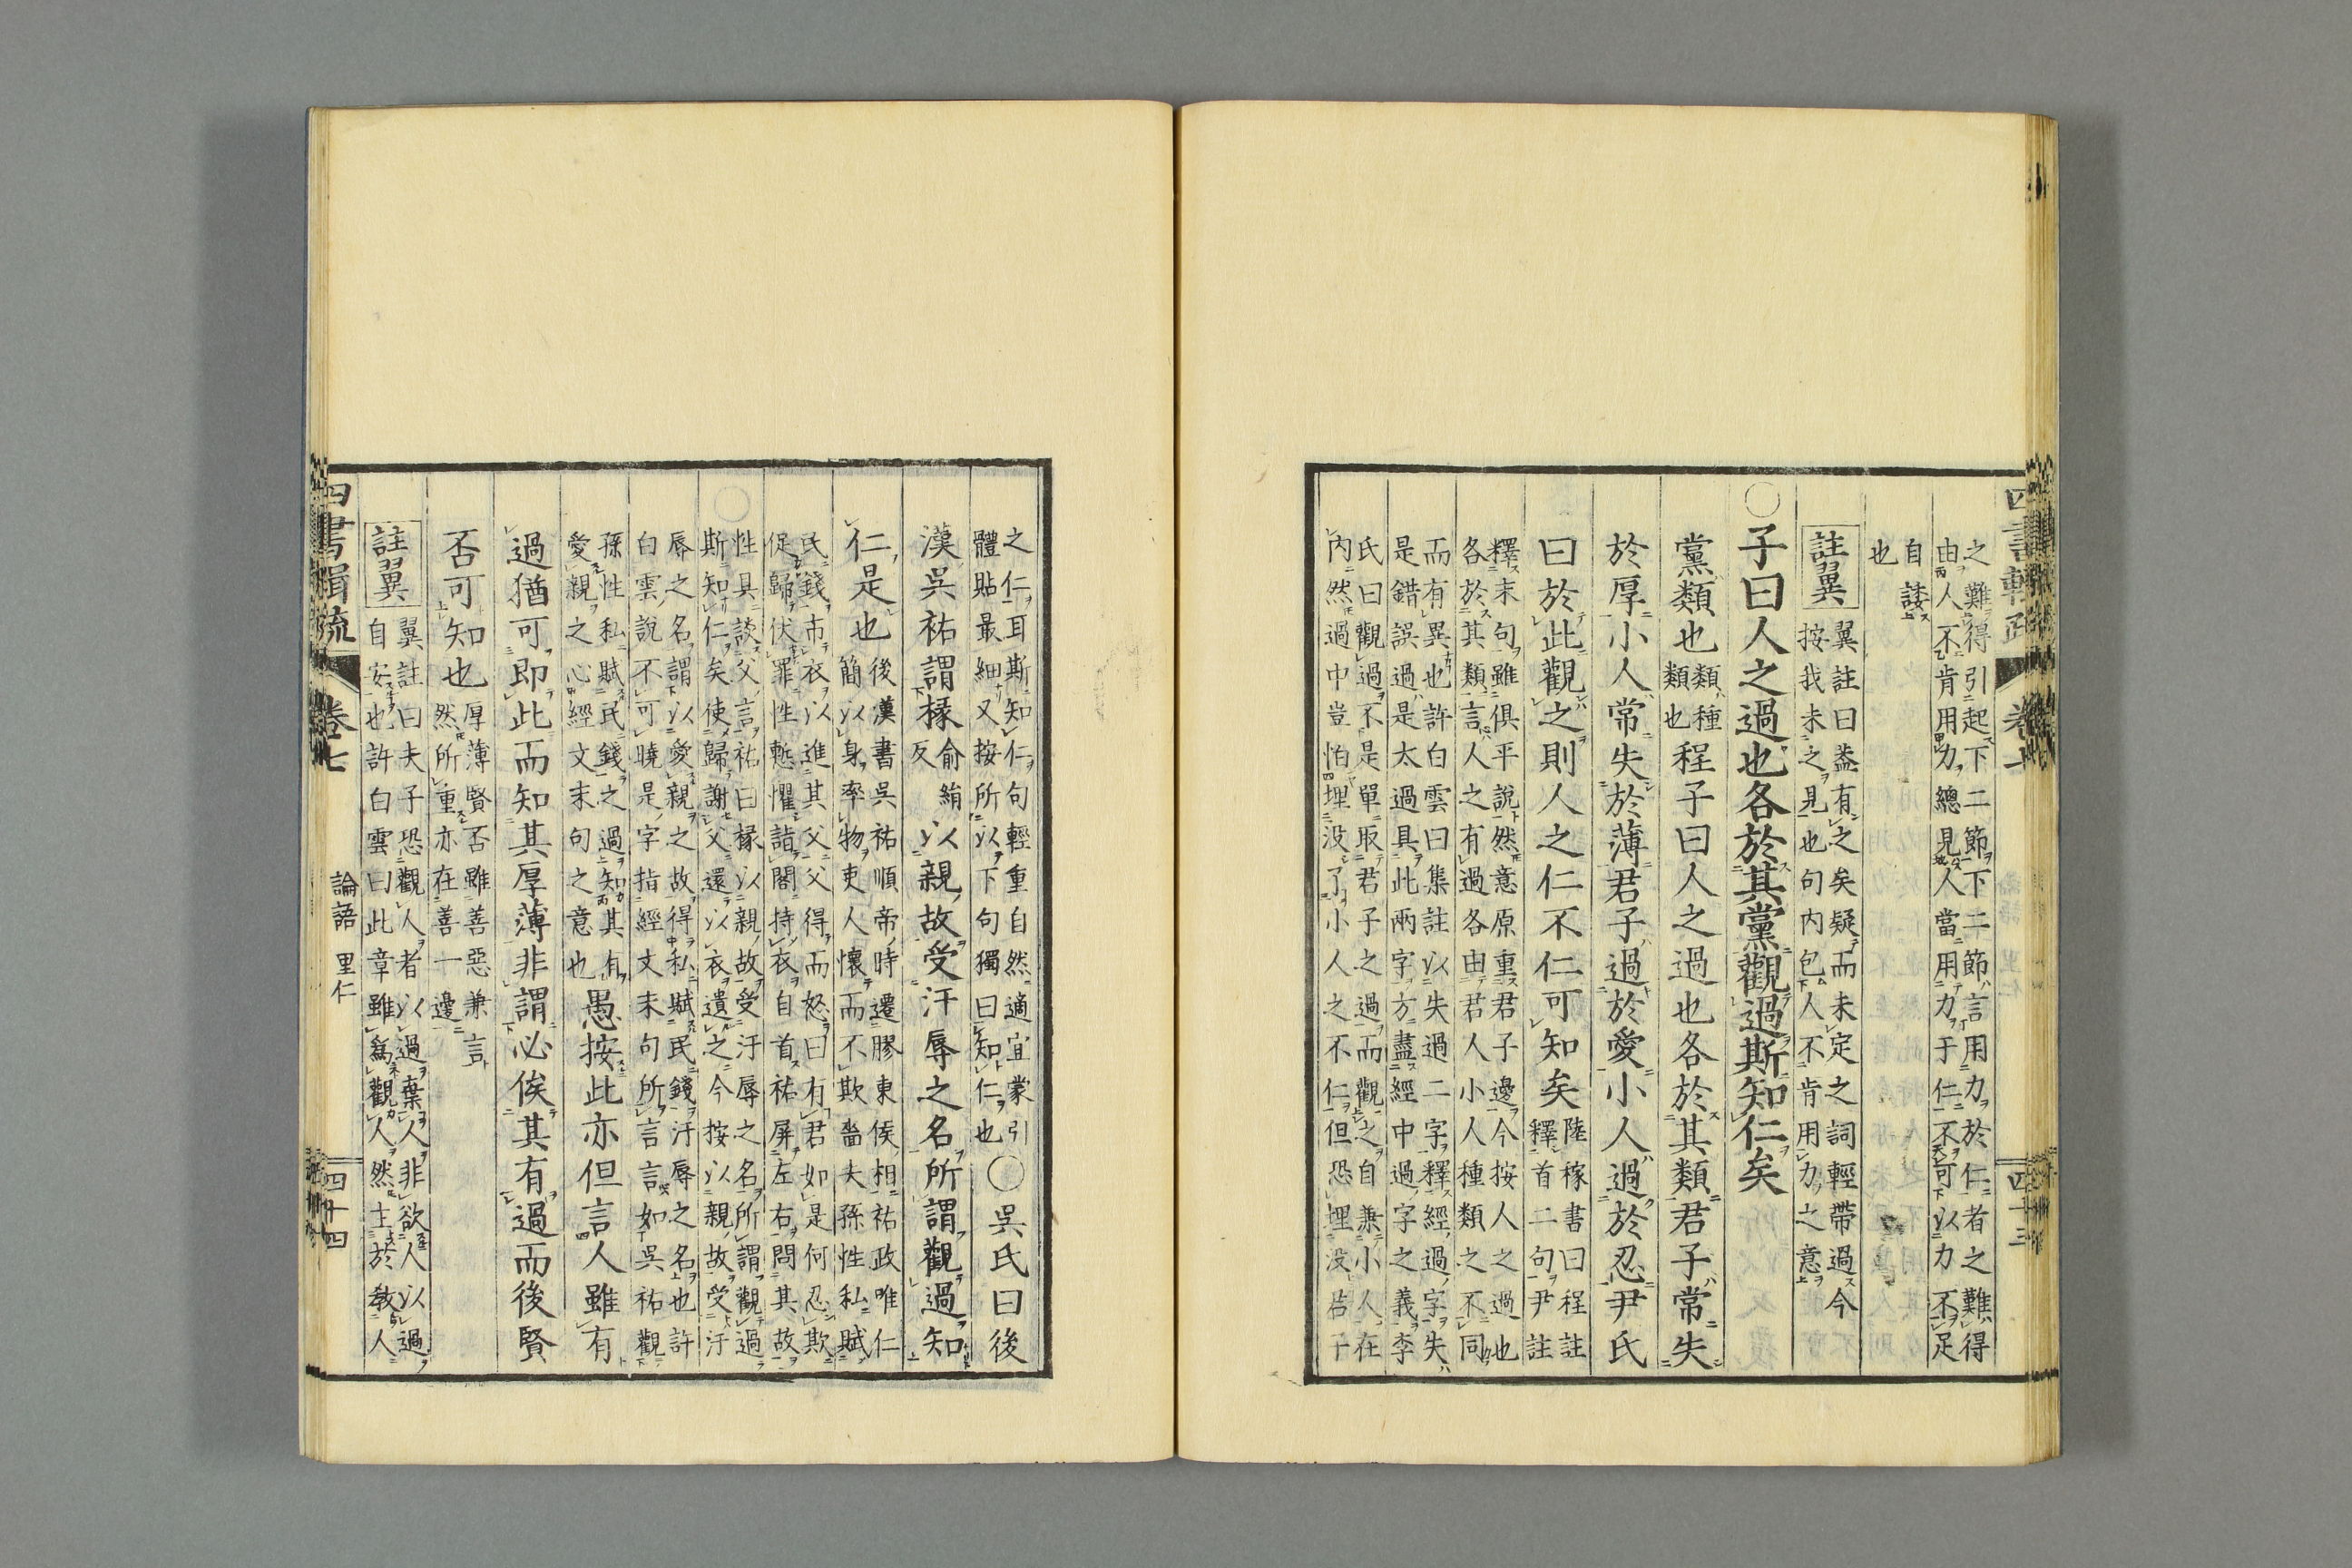 之難得引起下二節下二節言用力於仁者之難得
由人不肯用力總見人當用力于仁不可以力不足
自諉
也
註翼
翼註曰蓋有之矣疑而未定之詞輕帶過今
按我未之見也句内包下人不肯用力之意
○子曰人之過也各於其黨觀過斯知仁矣
黨類也
類種
類也
程子曰人之過也各於其類君子常失
於厚小人常失於薄君子過於愛小人過於忍尹氏
曰於此觀之則人之仁不仁可知矣
陸稼書曰程註
釋首二句尹註
釋末句雖俱平說然意原重君子邊今按人之過也
各於其類言人之有過各由君人小人種類之不同
而有異也許白雲曰集註以失過二字釋經過字失
是錯誤過是太過具此兩字方盡經中過字之義李
氏曰觀過不是單取君子之過而觀之自兼小人在
内然過中豈怕埋没了小人之不仁但恐埋没
四十三
之仁耳斯知仁句輕重自然適宜蒙引
體貼最細又按所以下句獨曰知仁也
○吳氏曰後
漢吳祐謂掾
俞絹
反
以親故受汙辱之名所謂觀過知
仁是也
後漢書吳祐順帝時遷膠東侯相祐政唯仁
簡以身率物吏人懷而不欺嗇夫孫性私賦
民錢市衣以進其父父得而怒曰有君如是何忍欺
促歸伏罪性慙懼詣閣持衣自首祐屏左右問其故
性具談父言祐曰掾以親故受汙辱之名所謂觀過
斯知仁矣使歸謝父還以衣遺之今按以親故受汙
辱之名謂以愛親之故得私賦民錢汙辱之名也許
白雲說不可曉是字指經文末句所言言如吳祐觀
孫性私賦民錢之過知其有
愛親之心經文末句之意也
愚按此亦但言人雖有
過猶可即此而知其厚薄非謂必俟其有過而後賢
否可知也
厚薄賢否雖善惡兼言
然所重亦在善一邊
註翼
翼註曰夫子恐觀人者以過棄人非欲人以過
自安也許白雲曰此章雖爲觀人然主於教人
四書輯疏
卷七
論語
里仁
四十四